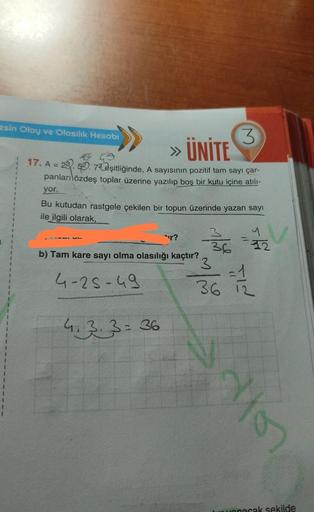 esin Olay ve Olasılık Hesabı
» ÜNİTE 3
eşitliğinde, A sayısının pozitif tam sayı çar-
panları özdeş toplar üzerine yazılıp boş bir kutu içine atılı-
yor.
Bu kutudan rastgele çekilen bir topun üzerinde yazan sayı
ile ilgili olarak,
3/36 = 1/12
b) Tam kare sayı olma olasılığı kaçtır?
3/36 = 1/12
4-25-49
4.3.3=36
2/9
şekilde